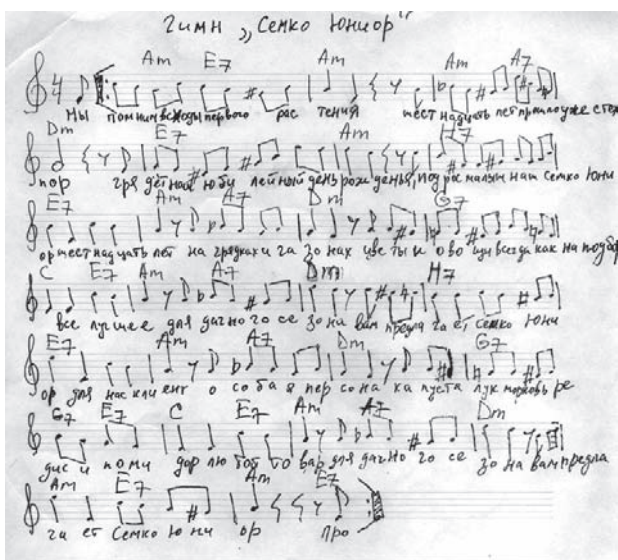 Гимн „Семко Юниор"
Am E7 Am Am A7
Мы помним всходы первого рас тения шест надцать лет прошло уже с тех
Dm E7 Am H7
пор грядет наш юби лейный день рожденья, подрос малыш наш Семко Юни
E7 Am A7 Dm G7
ор шест надцать лет на грядках и га зо нах цве ты и ово щи всегда как на подбор
C E7 Am A7 Dm H7
все лучшее для дачного се зо на вам предла га ет Семко Юни
E7 Am A7 Dm G7
ор для нас кли ент о со ба я пер со на ка пуста лук морковь ре
G7 E7 C E7 Am A7 Dm
дис и поми дор лю бой то вар для дачно го се зо на вам предла
Am E7 Am E7
га ет Семко Юни ор Про